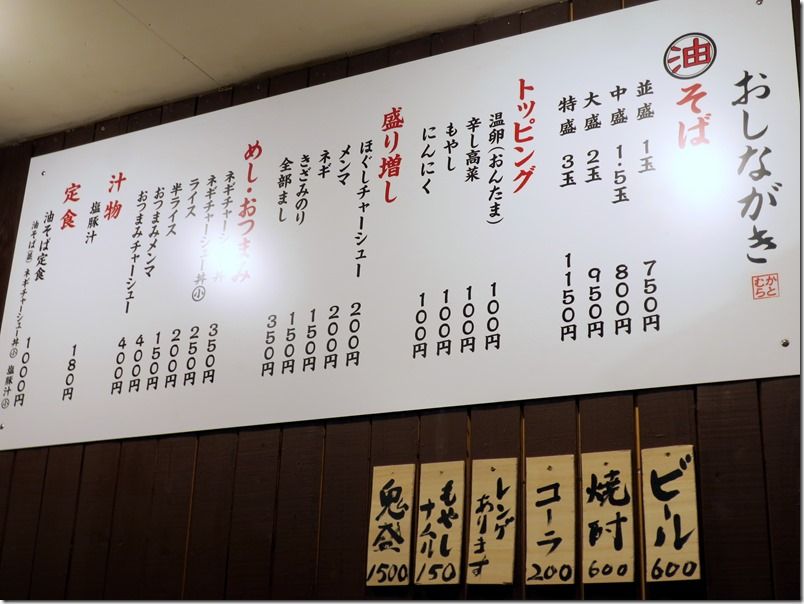 おしながき
かとむら
油そば
並盛 1玉 750円
中盛 1.5玉 800円
大盛 2玉 950円
特盛 3玉 1150円
トッピング
温卵(おんたま) 100円
辛し高菜 100円
もやし 100円
にんにく 100円
盛り増し
ほぐしチャーシュー 200円
メンマ 200円
ネギ 150円
きざみのり 150円
全部まし 350円
めし・おつまみ
ネギチャーシュー丼 350円
ネギチャーシュー丼小 250円
ライス 200円
半ライス 150円
おつまみメンマ 400円
おつまみチャーシュー 400円
汁物
塩豚汁 180円
定食
油そば定食 1000円
油そば(並) ネギチャーシュー丼小 塩豚汁小
ビール 600
焼酎 600
コーラ 200
レンゲあります
もやしナムル 150
鬼盛 1500